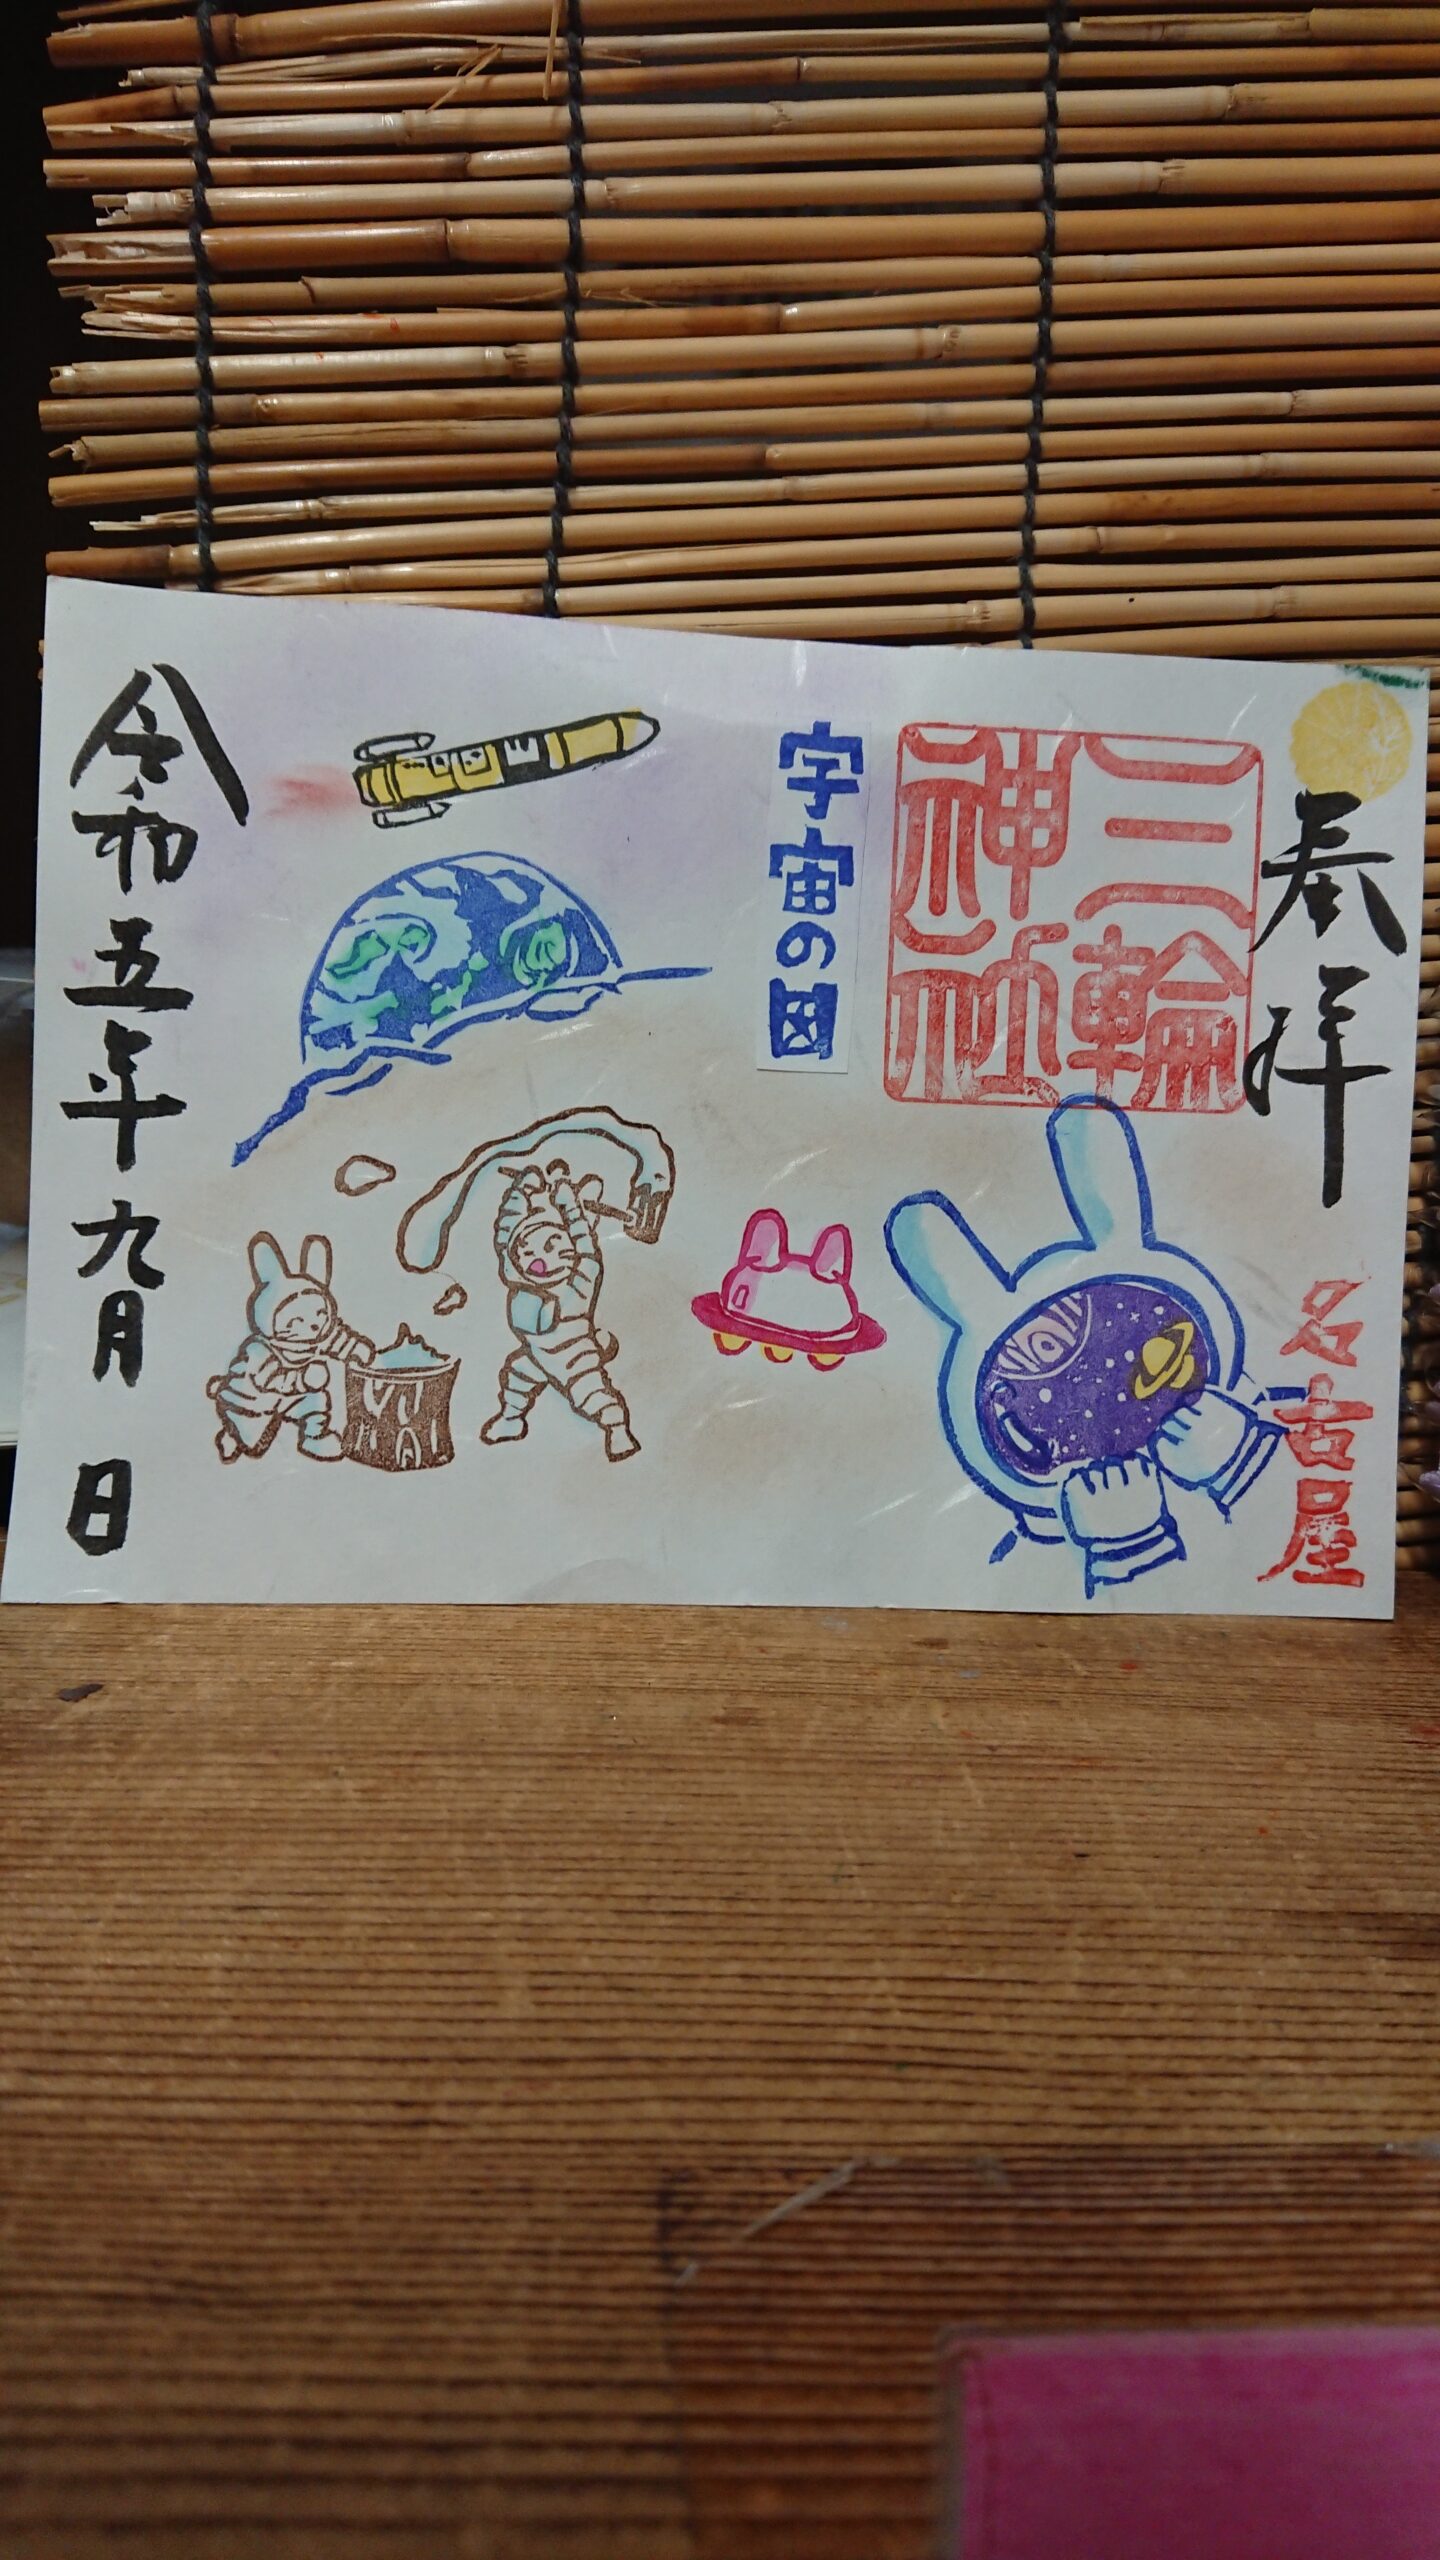 奉拝
名古屋
三輪
神社
宇宙の図
令和五年九月 日